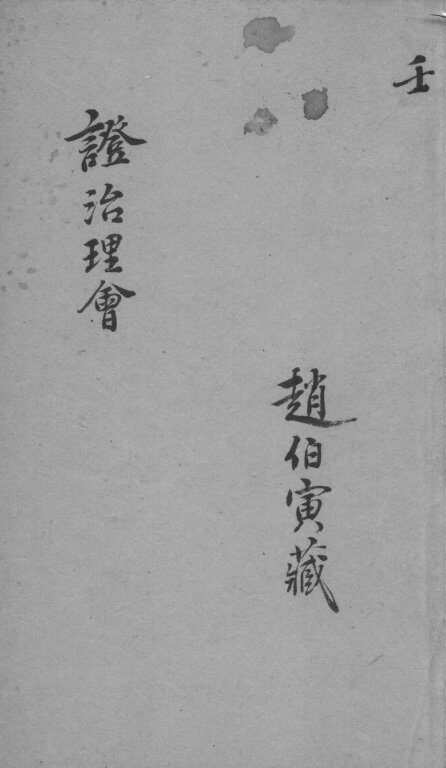 壬
趙伯寅藏
證治理會